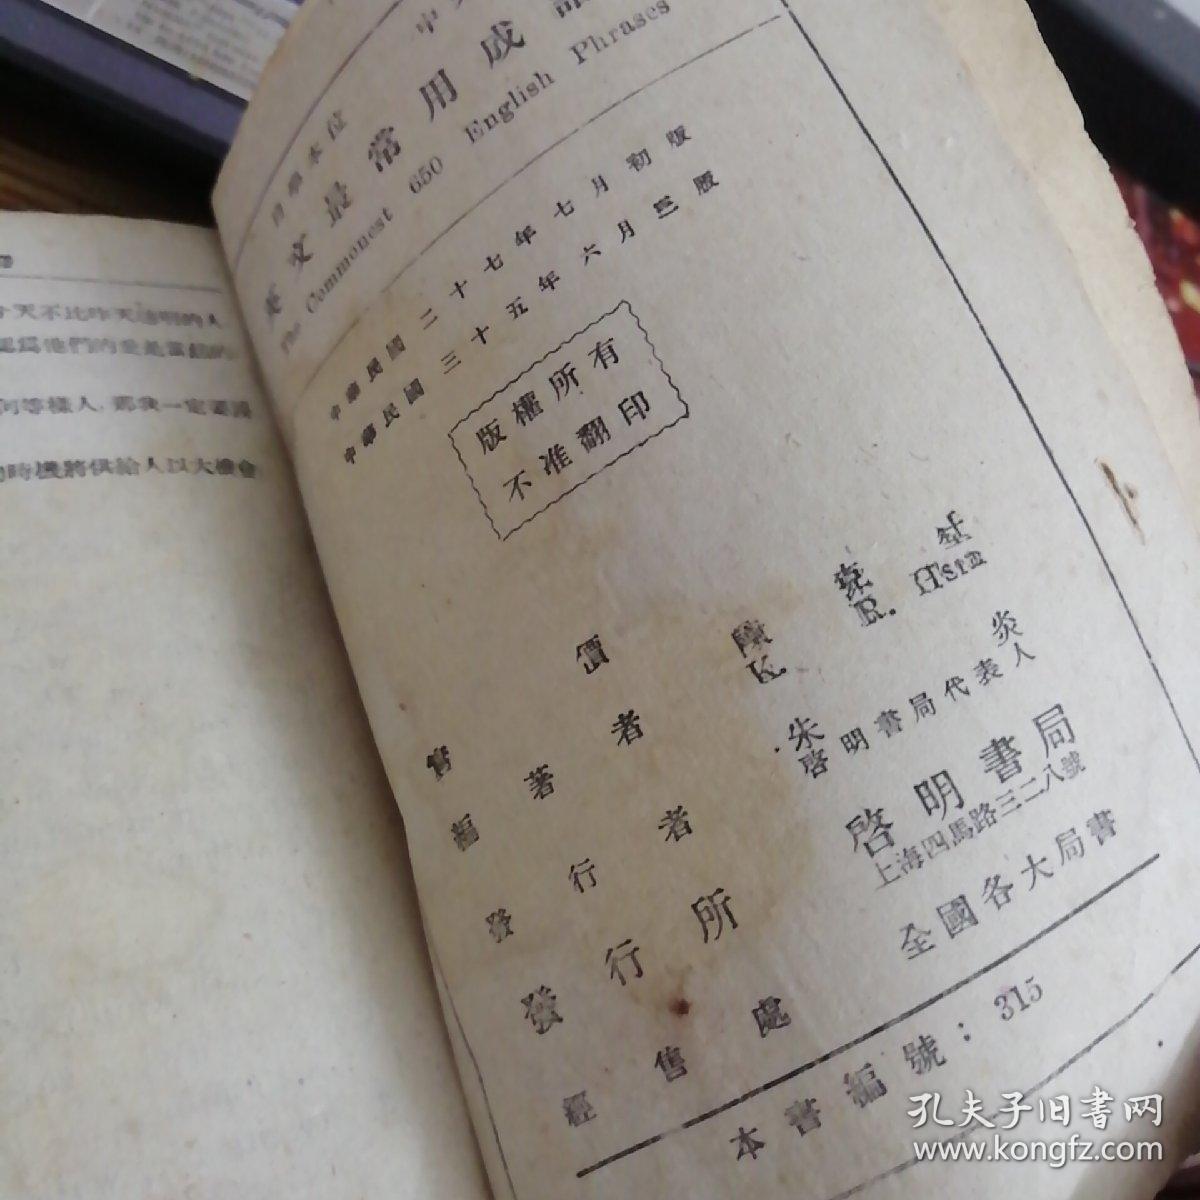 天不比昨天聰明的人
何等樣人,那我一定要說
時機將供給人以大機會
自學本位
英文最常用成語
The Commonest 650 English Phrases
中華民國二十七年七月初版
中華民國三十五年六月三版
版權所有
不准翻印
實價
編著者
K. R. Hsia
發行者 朱炎
啓明書局代表人
發行所 啓明書局
上海四馬路三二八號
經售處 全國各大局書
本書編號:315
孔夫子旧书网
www.kongfz.com